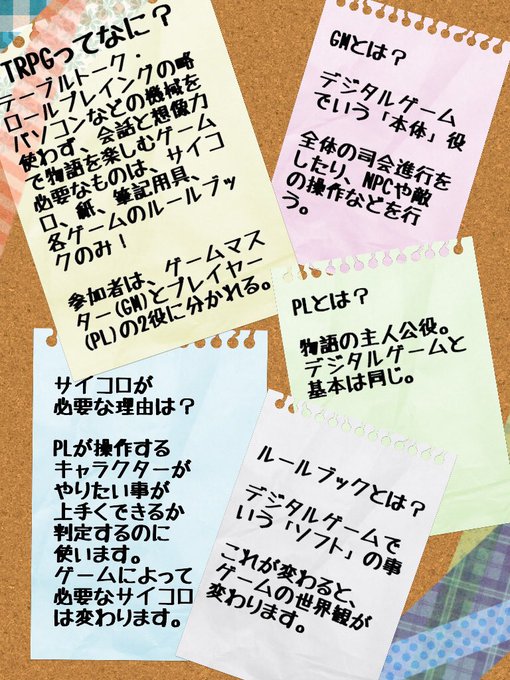 TRPGってなに？
テーブルトーク・
ロールプレイングの略
パソコンなどの機械を
使わず、会話と想像力
で物語を楽しむゲーム
必要なものは、サイコ
ロ、紙、筆記用具、
各ゲームのルールブッ
クのみ！
参加者は、ゲームマス
ター(GM)とプレイヤー
(PL)の2役に分かれる。
GMとは？
デジタルゲーム
でいう「本体」役
全体の司会進行を
したり、NPCや敵
の操作などを行
う。
PLとは？
物語の主人公役。
デジタルゲームと
基本は同じ。
サイコロが
必要な理由は？
PLが操作する
キャラクターが
やりたい事が
上手くできるか
判定するのに
使います。
ゲームによって
必要なサイコロ
は変わります。
ルールブックとは？
デジタルゲームで
いう「ソフト」の事
これが変わると、
ゲームの世界観が
変わります。